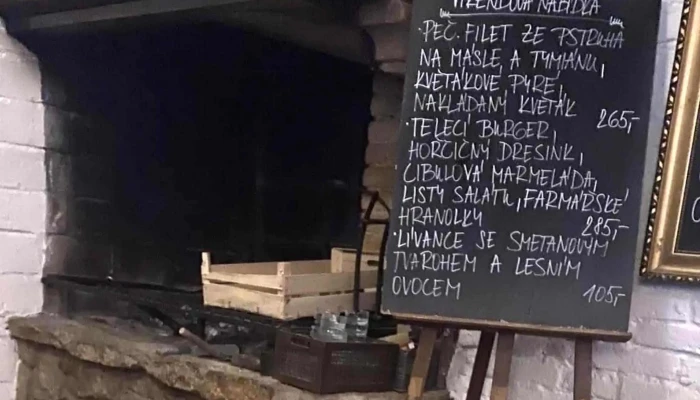 VÍKENDOVÁ NABÍDKA
·PEČ. FILET ZE PSTRUHA
NA MÁSLE A TYMIÁNU,
KVĚTÁKOVÉ PYRÉ,
NAKLÁDANÝ KVĚTÁK 265,-
·TELECÍ BURGER,
HOŘČIČNÝ DRESINK,
CIBULOVÁ MARMELÁDA,
LISTY SALÁTU, FARMÁŘSKÉ
HRANOLKY 285,-
·LÍVANCE SE SMETANOVÝM
TVAROHEM A LESNÍM
OVOCEM 105,-